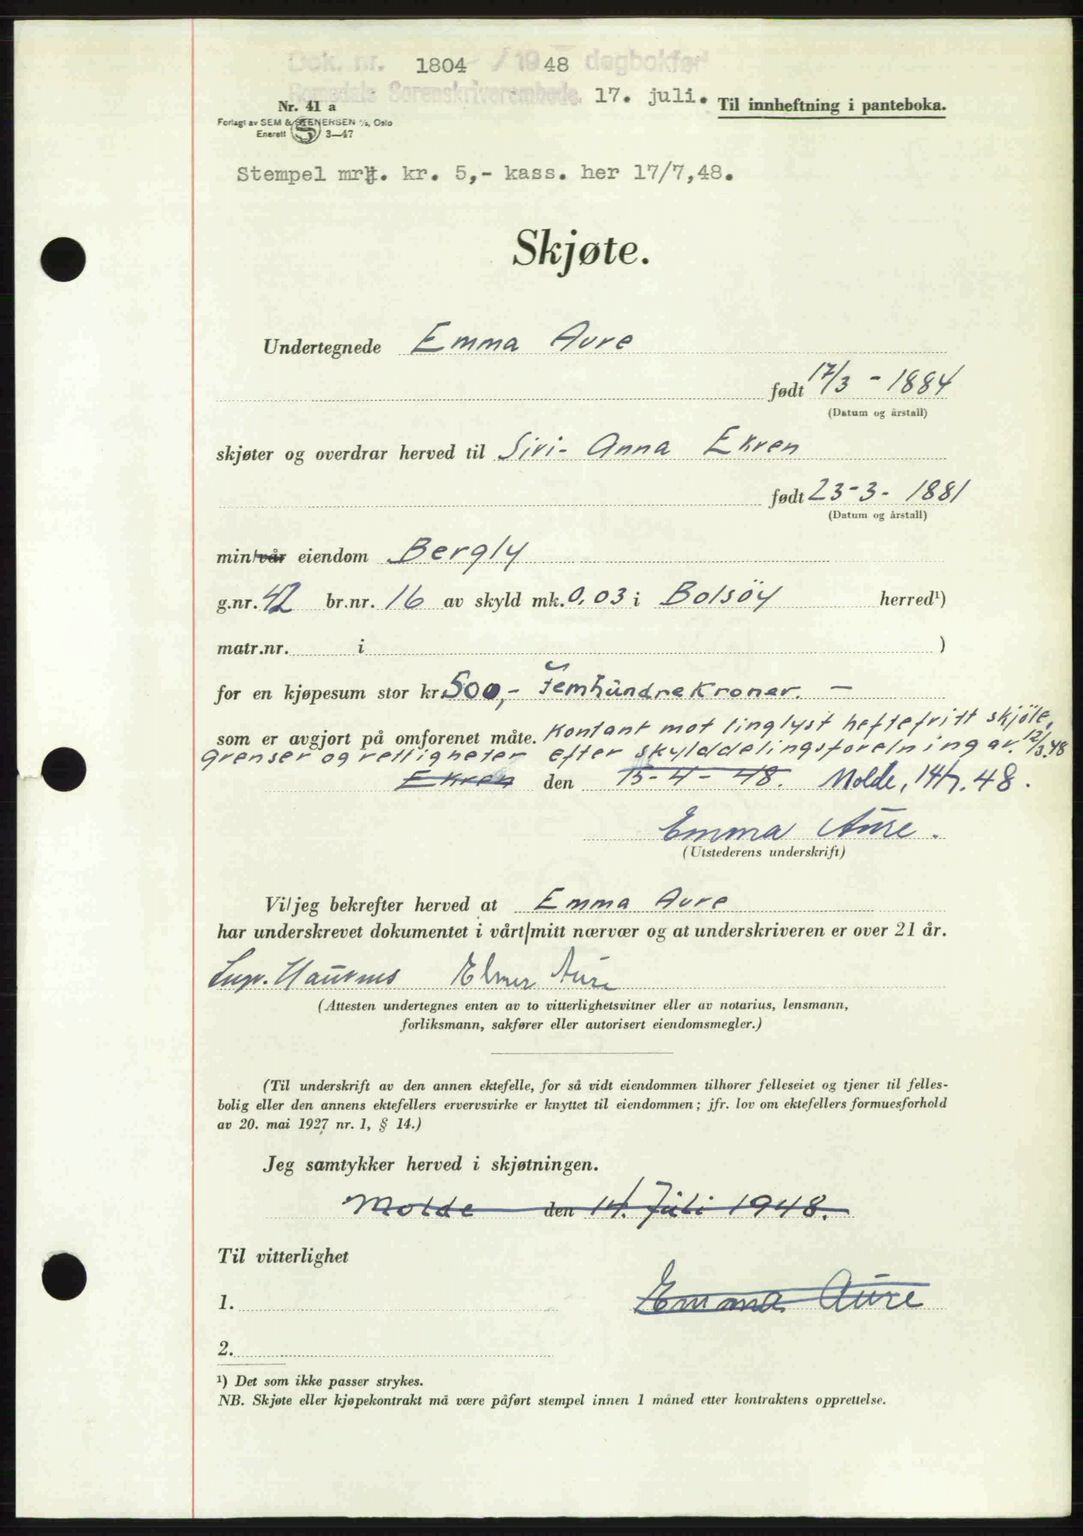 Dok. nr. 1804 / 1948 dagbokført
Romsdals Sorenskriverembede. 17. juli. Til innheftning i panteboka.
Nr. 41 a
Forlagt av SEM & STENERSEN A/S, Oslo
Enerett 3—47
Stempel mrk. kr. 5,- kass. her 17/7,48.
Skjøte.
Undertegnede Emma Aure
født 17/3 - 1884
(Datum og årstall)
skjøter og overdrar herved til Siri- Anna Ekren
født 23-3- 1881
(Datum og årstall)
min/vår eiendom Bergly
g.nr. 42 br.nr. 16 av skyld mk. 0,03 i Bolsöy herred¹)
matr.nr. i )
for en kjøpesum stor kr. 500,- Femhundrekroner. —
som er avgjort på omforenet måte. Kontant mot tinglyst heftefritt skjöte,
grenser og rettigheter efter skylddelingsforetning av. 12/3.48
Ekren den 15-4-48. Molde, 14/7.48.
Emma Aure.
(Utstederens underskrift)
Vi/jeg bekrefter herved at Emma Aure
har underskrevet dokumentet i vårt/mitt nærvær og at underskriveren er over 21 år.
Elmer Aure
(Attesten undertegnes enten av to vitterlighetsvitner eller av notarius, lensmann,
forliksmann, sakfører eller autorisert eiendomsmegler.)
(Til underskrift av den annen ektefelle, for så vidt eiendommen tilhører felleseiet og tjener til felles-
bolig eller den annens ektefellers ervervsvirke er knyttet til eiendommen; jfr. lov om ektefellers formuesforhold
av 20. mai 1927 nr. 1, § 14.)
Jeg samtykker herved i skjøtningen.
Molde den 14. Juli 1948.
Til vitterlighet
1. Emma Aure
2.
¹) Det som ikke passer strykes.
NB. Skjøte eller kjøpekontrakt må være påført stempel innen 1 måned etter kontraktens opprettelse.